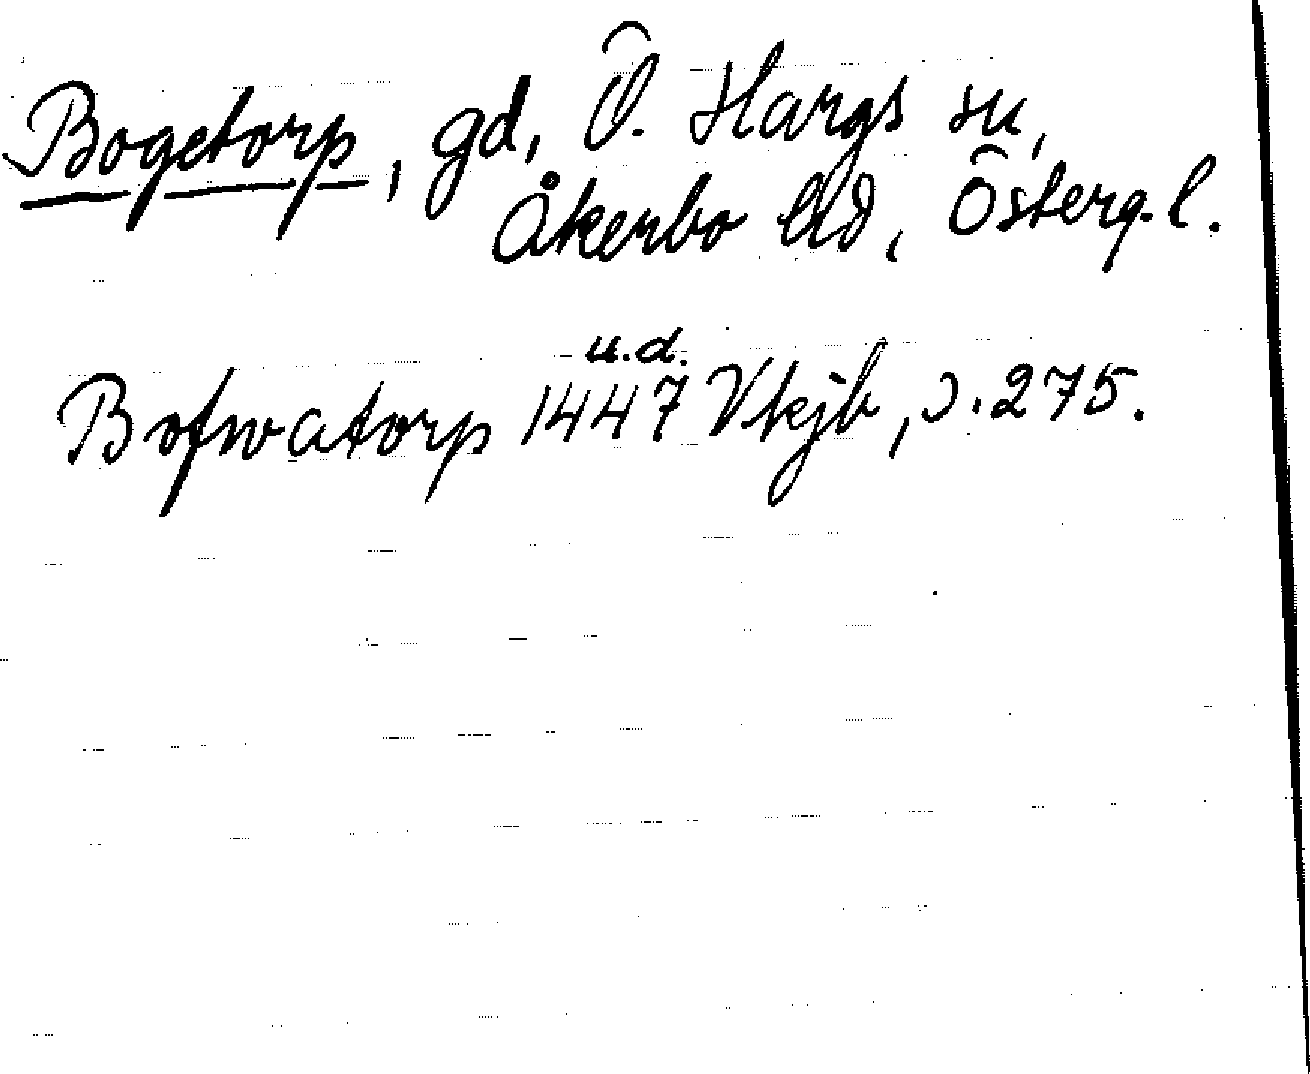 Bogetorp, gd, Ö. Hargs sn,
Åkerbo hd, Österg. l.
u.d.
Bofwatorp 1447 Vkjb, s. 275.